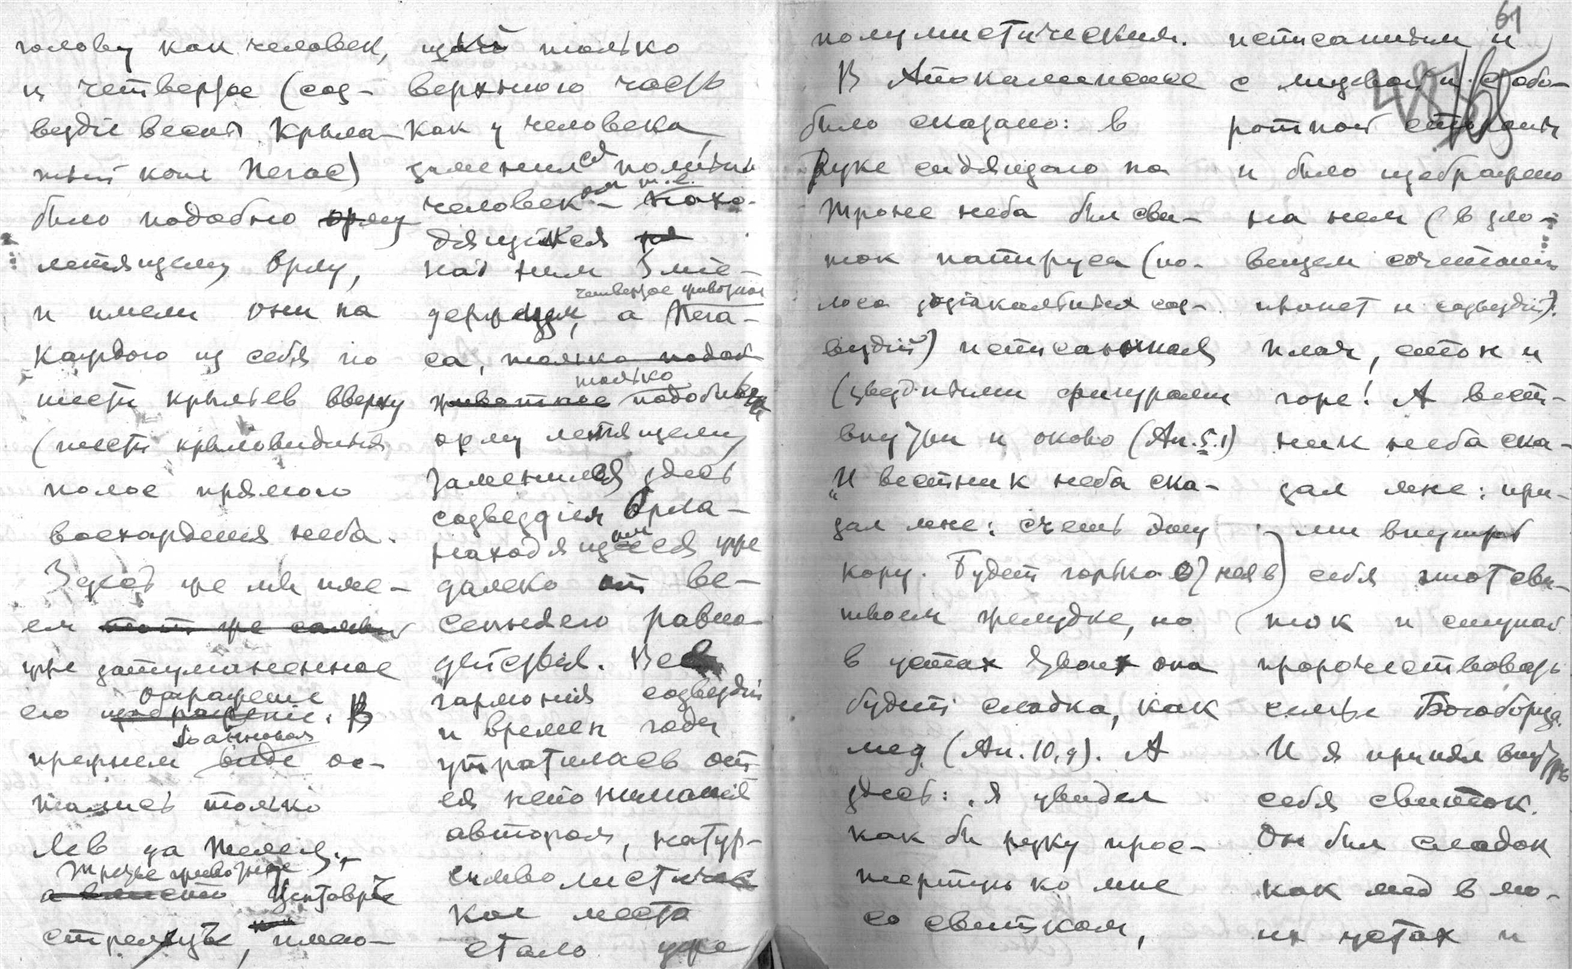 голову как человек,
и четвертое (соз-
вездiе весны Крыла-
тый конь Пегас)
было подобно орлу
летящему Орлу,
и имели они на
каждого из себя по
шести крыльев вверху
(шесть крыловидных
полос прямого
восхождения неба.
Здесь же мы име-
ем тот же самый
уже затуманенное
отражение
его изображение. В
прежнем виде ос-
тались только
Лев да Телец,
третье животное
а вместо Центавръ
стрелецъ, имею-
щий только
верхнюю часть
как у человека,
заменился полным
человеком т.е.
дящимся
над ним Змее-
четвертое животное
держцем, а Пега-
са, только подоб
только
животное подобных
орлу летящему
заменился здесь
созвездiем Орла
находящимся уже
далеко от ве-
сеннего равно-
действiя. Вся
гармонiя созвездiй
и времен года
утратилась от
ея непониманiя
автором, натур-
символистичес
кая места
стало уже
61
полумистическим.
В Апокалипсисе
было сказано: в
руке сидящаго на
троне неба был сви-
ток папируса (по-
лоса зодiакальных соз-
вездiй) исписанная
(звездными фигурами
внутри и около (Ап. 5.1)
"И вестник неба ска-
зал мне: съешь эту
кору. Будет горько от нея в
твоем желудке, но
в устах твоих она
будет сладка, как
мед (Ап. 10,9). А
здесь: "Я увидел
как бы руку прос-
тертую ко мне
со свитком,
исписанным и
с лицевой и с обо-
ротной стороны
и было изображено
на нем (в зло-
вещем сочетанiи
планет и созвездiй).
плач, стон и
горе! А вест-
ник неба ска-
зал мне: при-
ми внутрь
себя этот сви-
ток и ступай
пророчествовать
семье Богоборца.
И я принял внутрь
себя свиток.
Он был сладок
как мед в мо-
их устах и